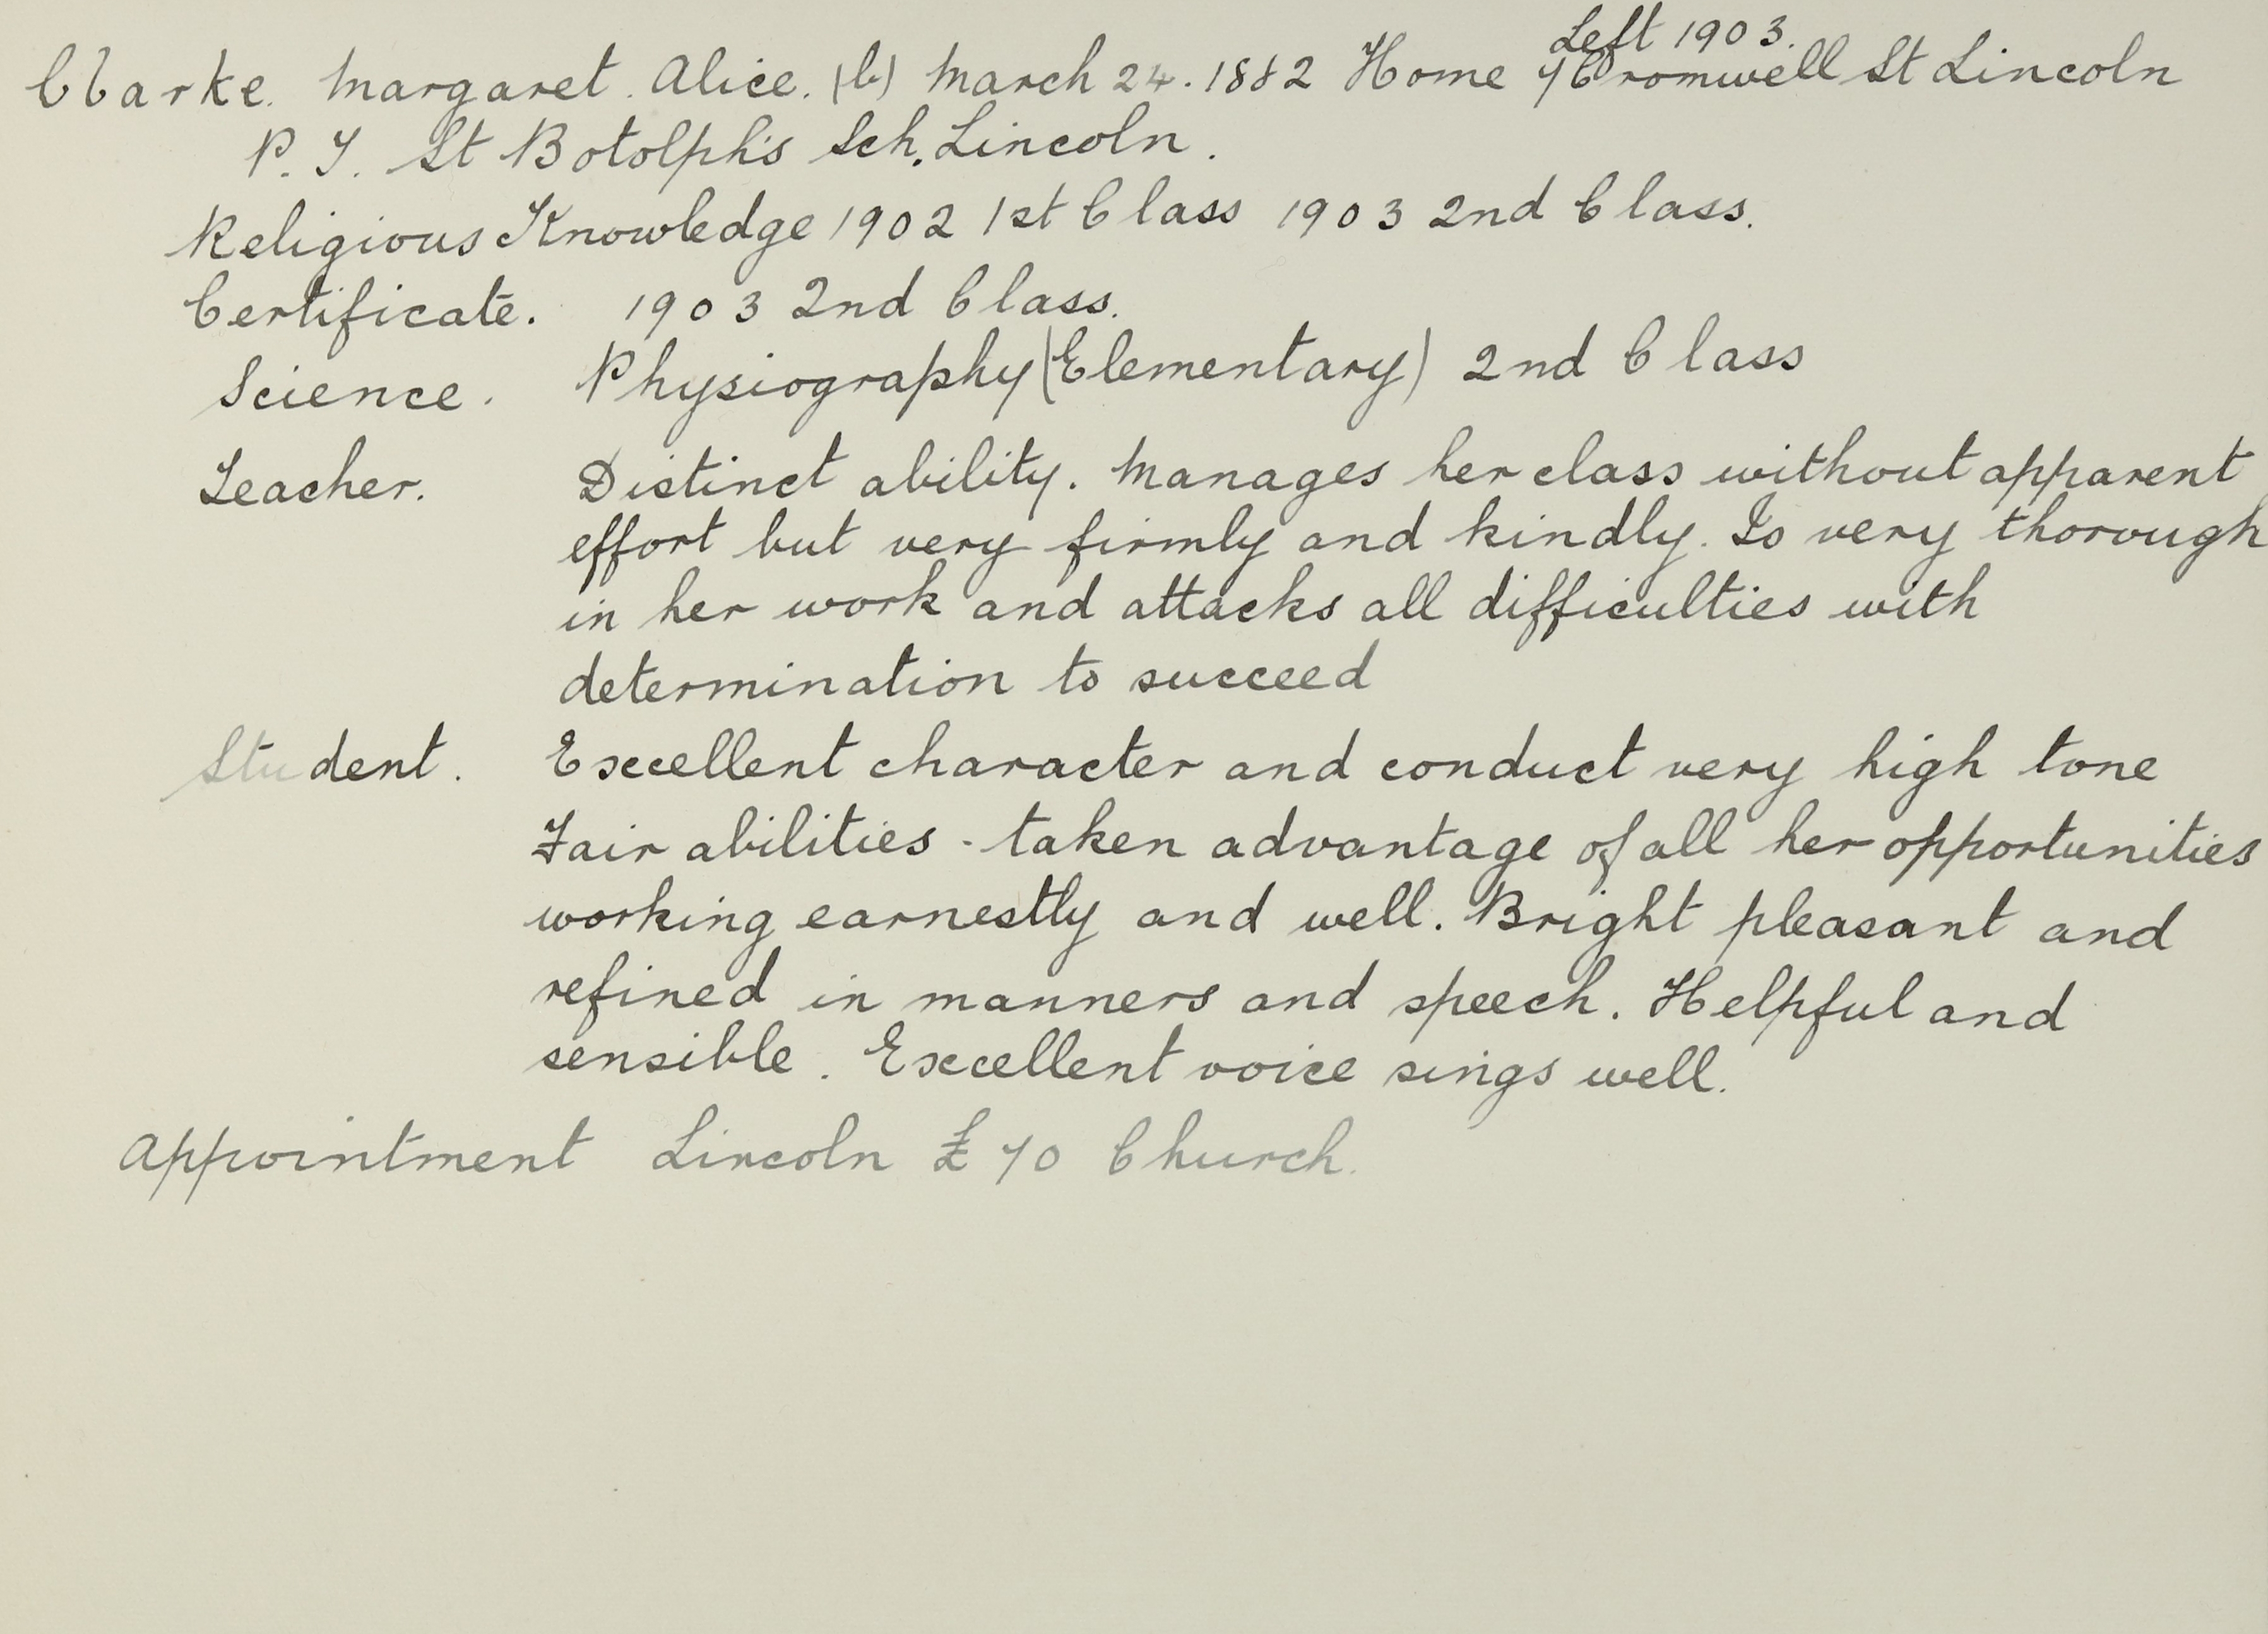 Left 1903.
Clarke. Margaret. Alice. (b) March 24. 1882 Home 7 Cromwell St Lincoln
P. T. St Botolph's Sch. Lincoln.
Religious Knowledge 1902 1st Class 1903 2nd Class.
Certificate. 1903 2nd Class.
Science. Physiography (Elementary) 2nd Class
Teacher. Distinct ability. Manages her class without apparent
effort but very firmly and kindly. Is very thorough
in her work and attacks all difficulties with
determination to succeed
Student. Excellent character and conduct very high tone
Fair abilities - taken advantage of all her opportunities
working earnestly and well. Bright pleasant and
refined in manners and speech. Helpful and
sensible. Excellent voice sings well.
Appointment Lincoln £70 Church.